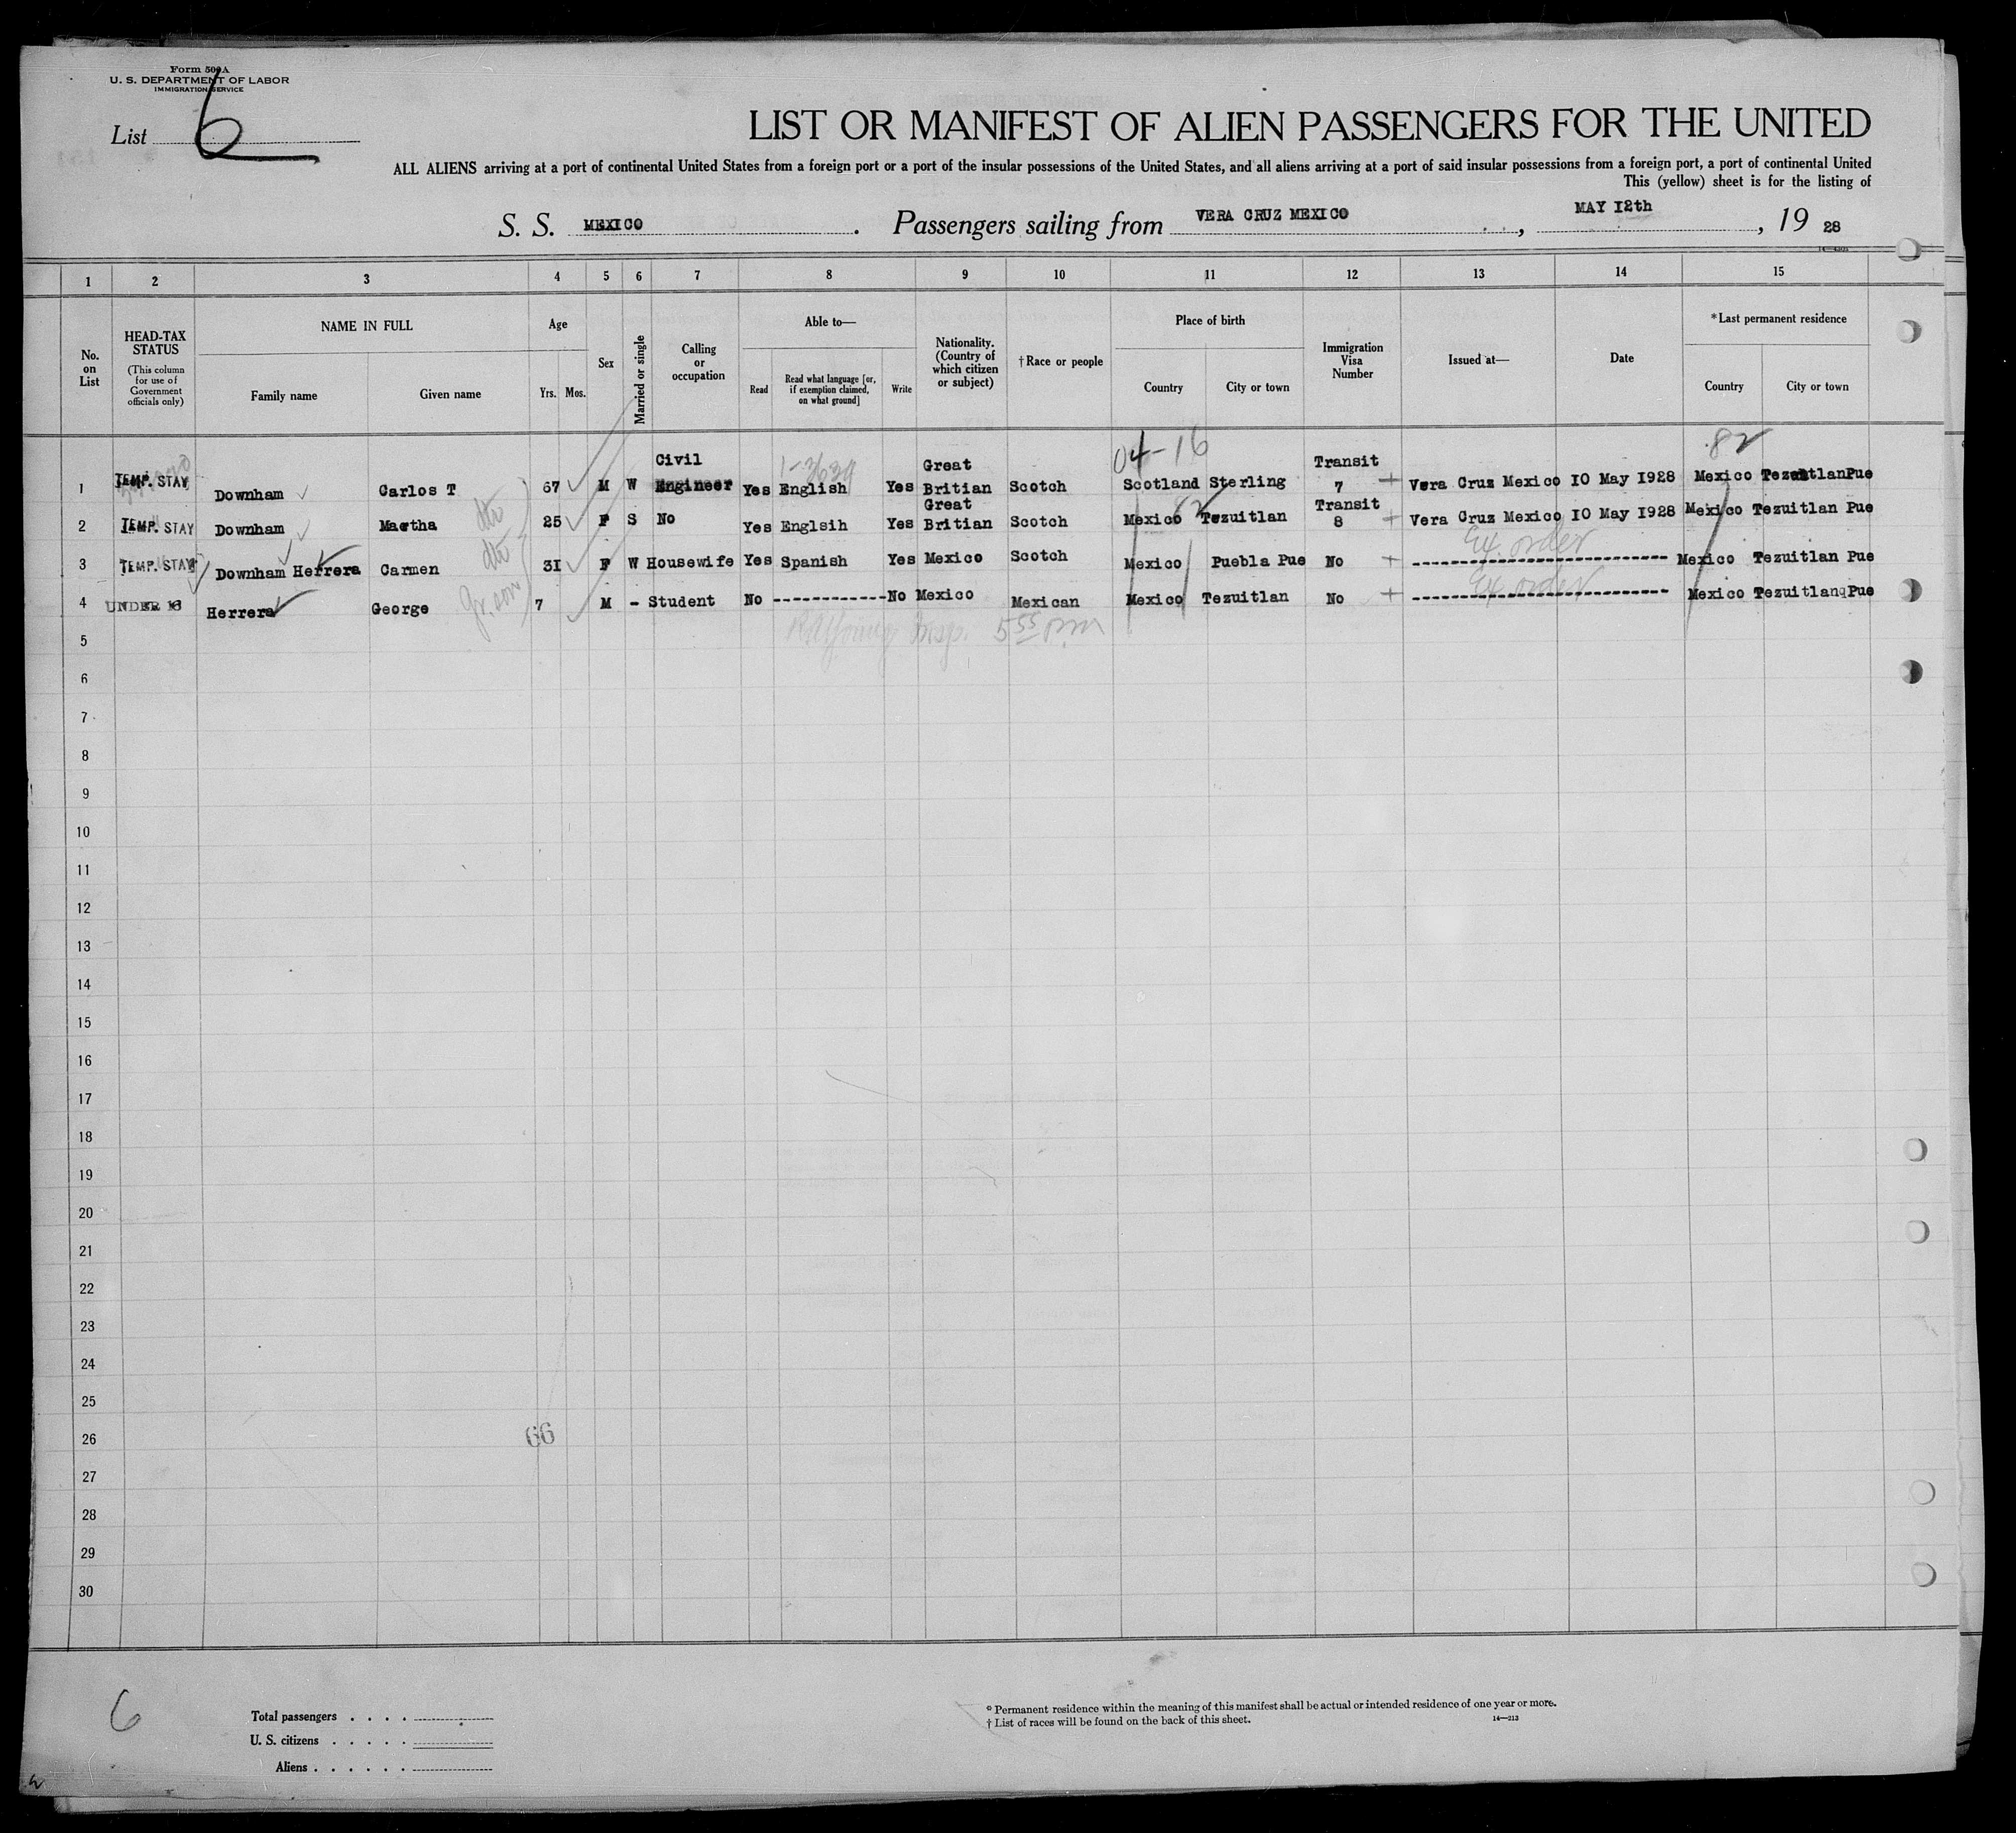 Form 500A
U. S. DEPARTMENT OF LABOR
IMMIGRATION SERVICE
List 6
LIST OR MANIFEST OF ALIEN PASSENGERS FOR THE UNITED
ALL ALIENS arriving at a port of continental United States from a foreign port or a port of the insular possessions of the United States, and all aliens arriving at a port of said insular possessions from a foreign port, a port of continental United
This (yellow) sheet is for the listing of
S. S. MEXICO . Passengers sailing from VERA CRUZ MEXICO , MAY 12th , 19 28
1 2 3 4 5 6 7 8 9 10 11 12 13 14 15
No. on List
HEAD-TAX STATUS
(This column for use of Government officials only)
NAME IN FULL
Family name Given name
Age
Yrs. Mos.
Sex
Married or single
Calling or occupation
Able to—
Read
Read what language [or, if exemption claimed, on what ground]
Write
Nationality. (Country of which citizen or subject)
†Race or people
Place of birth
Country City or town
Immigration Visa Number
Issued at—
Date
*Last permanent residence
Country City or town
04-16 82
1 TEMP. STAY Downham Carlos T 67 M W Civil Engineer Yes English Yes Great Britian Scotch Scotland Sterling Transit 7 Vera Cruz Mexico 10 May 1928 Mexico Tezuitlan Pue
2 TEMP. STAY Downham Martha 25 F S No Yes Englsih Yes Great Britian Scotch Mexico 82 Tezuitlan Transit 8 Vera Cruz Mexico 10 May 1928 Mexico Tezuitlan Pue
3 TEMP. STAY Downham Herrera Carmen dto 31 F W Housewife Yes Spanish Yes Mexico Scotch Mexico Puebla Pue No Ex. order Mexico Tezuitlan Pue
4 UNDER 16 Herrera George Gr. son 7 M - Student No ------------ No Mexico Mexican Mexico Tezuitlan No Ex order Mexico Tezuitlan Pue
Insp. 5 55 pm
5
6
7
8
9
10
11
12
13
14
15
16
17
18
19
20
21
22
23
24
25
26
66
27
28
29
30
6
Total passengers . . . .
U. S. citizens . . . . .
Aliens . . . . . .
* Permanent residence within the meaning of this manifest shall be actual or intended residence of one year or more.
† List of races will be found on the back of this sheet.
14—213